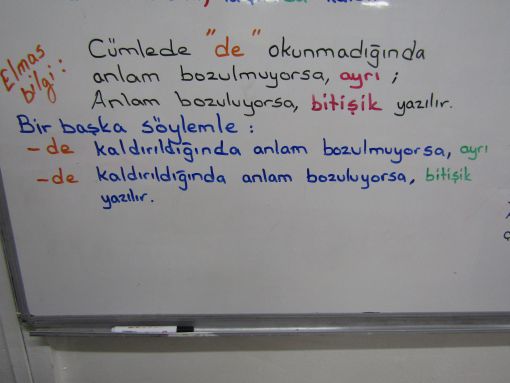 Elmas bilgi:
Cümlede "de" okunmadığında
anlam bozulmuyorsa, ayrı ;
Anlam bozuluyorsa, bitişik yazılır.
Bir başka söylemle :
- de kaldırıldığında anlam bozulmuyorsa, ayrı
- de kaldırıldığında anlam bozuluyorsa, bitişik
yazılır.